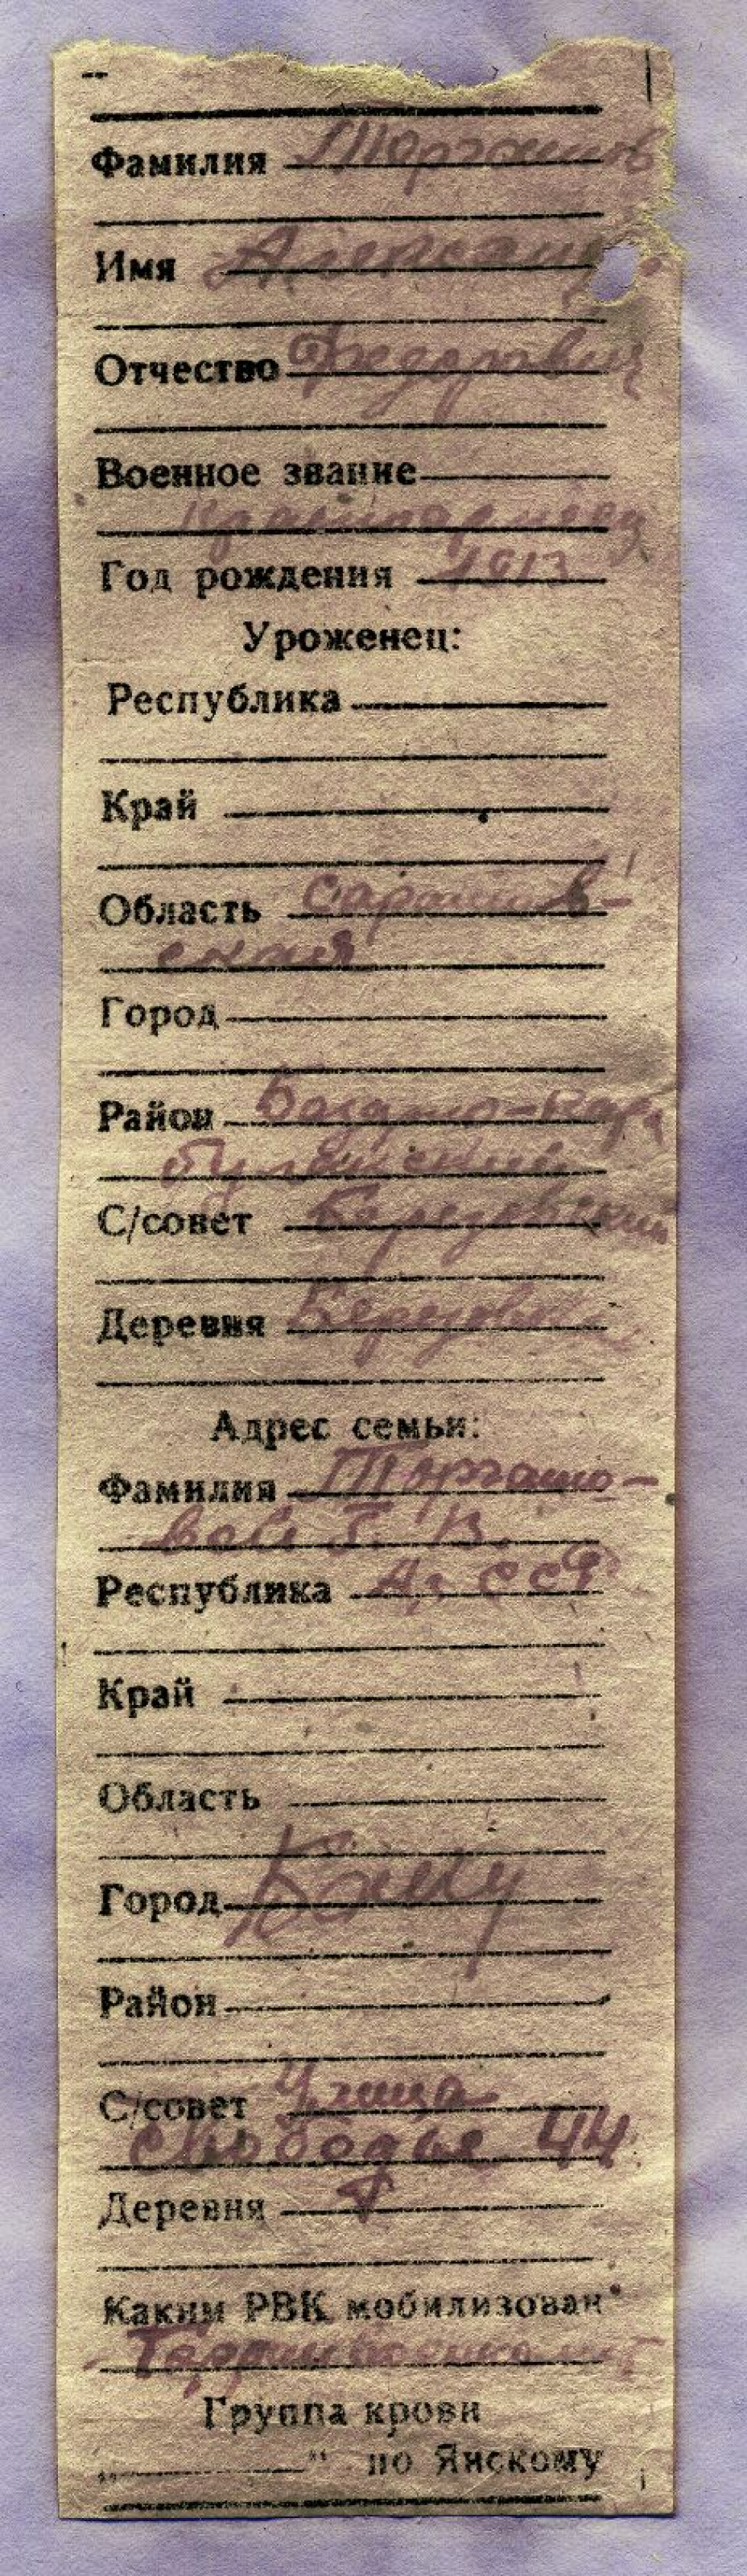 Фамилия Торгашов
Имя Александр
Отчество Федорович
Военное звание
красноармеец
Год рождения 1913
Уроженец:
Республика
Край
Область Саратов-
ская
Город
Район
С/совет Березовский
Деревня Березовка
Адрес семьи:
Фамилия Торгашо-
вой
Республика Аз ССР
Край
Область
Город Баку
Район
С/совет Улица
свободы 44
Деревня
Каким РВК мобилизован
Группа крови
„ “ по Янскому